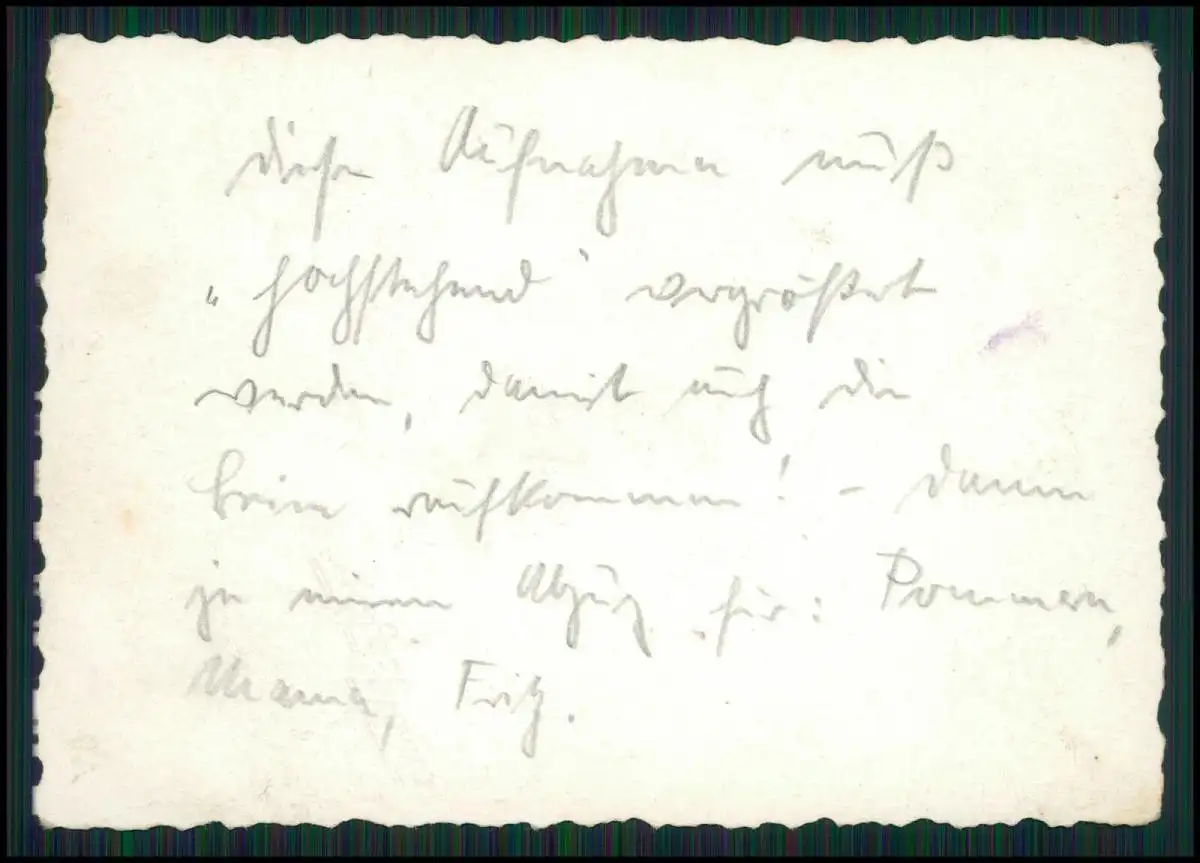 diese Aufnahme muß
„hochstehend" vergrößert
werden, damit auch die
Beine raufkommen! – Dann
je einen Abzug für: Pommern,
Mama, Fritz.